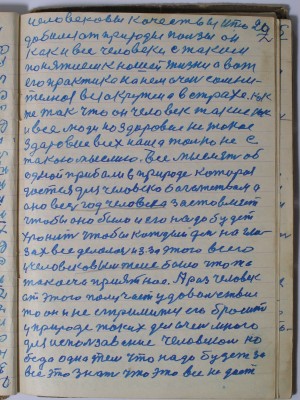 человековы качествы что 20
добыла от природы пользы он 2
как и все человеки с таким
понятием к нашей жизни а вот
его практика на нем очен сомни-
тельное вся окружена в страхе. как
же так что он человек такие как
и все люди но здоровье не такое
здоровье всех наша только не с
такою мыслию. Все мыслят об
одной прибыли в природе которая
дается для человека богатством а
оно всех год человека заставляет
чтобы оно было и его надо будет
хронить чтобы каждый ден на гла-
зах все делалось из за этого всего
человековым теле было что то
такое что приятное. А раз человек
от этого получает удовольствие
то он и не стремится его бросить
у природе таких дел очен много
для использование человеком но
беда одна тем что надо будет за
все это знать что это все не дает